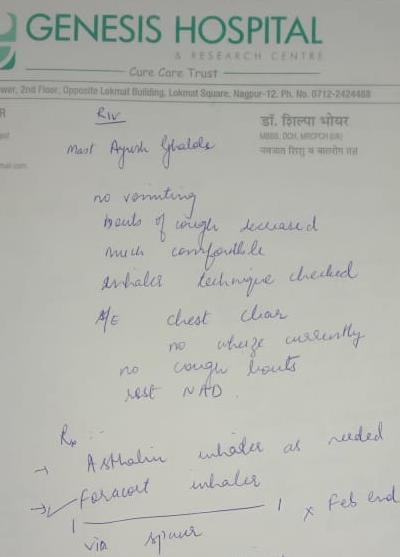 GENESIS HOSPITAL
& RESEARCH CENTRE
Cure Care Trust
wer, 2nd Floor, Opposite Lokmat Building, Lokmat Square, Nagpur-12. Ph. No. 0712-2424488
R
R/V
डॉ. शिल्पा भोयर
MBBS, DCH, MRCPCH (UK)
नवजात शिशु व बालरोग तज्ञ
mail.com
Mast Ayush
no vomiting
bouts of cough decreased
much comfortble
inhaler technique checked
A/E chest clear
no wheeze currently
no cough bouts
rest NAD.
Rx :-
→ Asthalin inhaler as needed
→ Foracort inhaler
1 —— 1 x Feb end
via spacer